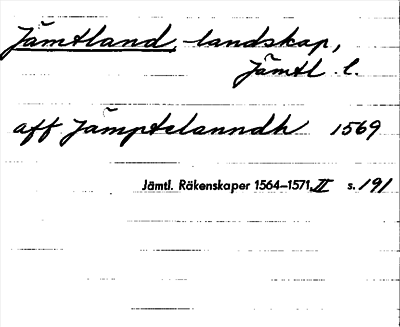 Jämtland, landskap,
Jämtl l.
aff Jämptelanndh 1569
Jämtl. Räkenskaper 1564–1571, II s. 191